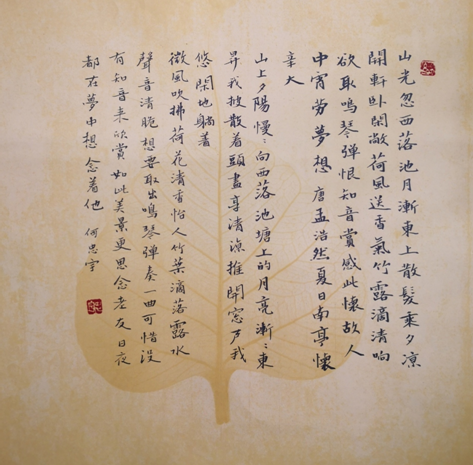 山光忽西落池月漸東上散髮乘夕凉
開軒卧閑敞荷風送香氣竹露滴清响
欲取鳴琴彈恨知音賞感此懷故人
中宵劳夢想 唐孟浩然夏日南亭懷
辛大
山上夕陽慢〻向西落池塘上的月亮漸〻東
昇我披散着頭盡享清凉推開窓户我
悠閑地躺着
微風吹拂荷花清香怡人竹葉滴落露水
聲音清脆想要取出鳴琴彈奏一曲可惜没
有知音来欣賞如此美景更思念老友日夜
都在夢中想念着他 何忠宇